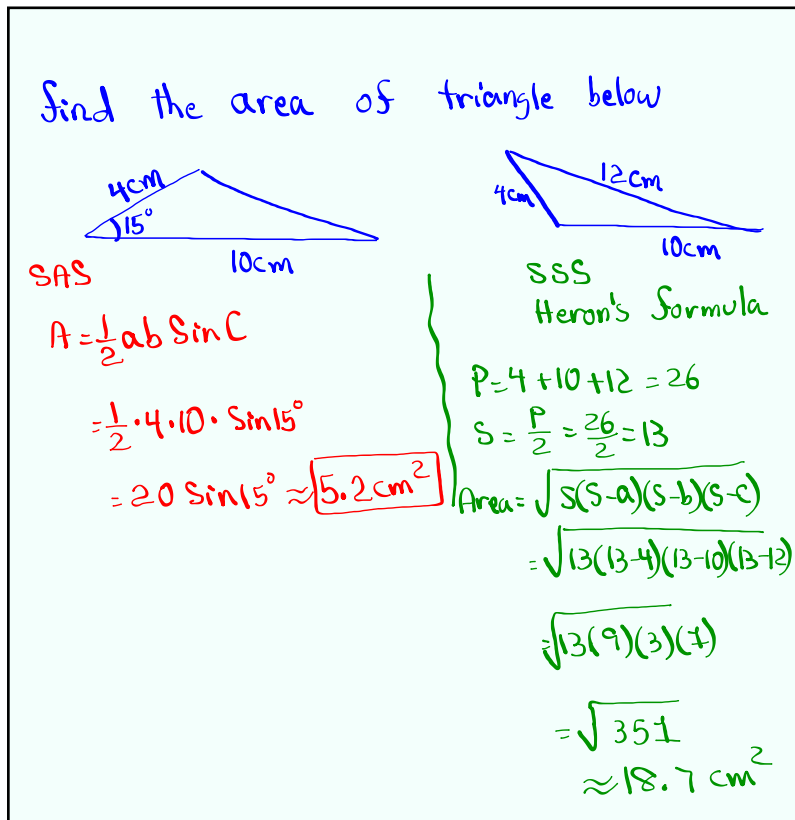 find the area of triangle below
4cm
15°
10cm
SAS
A = 1/2 ab Sin C
= 1/2 · 4 · 10 · Sin 15°
= 20 Sin 15° ≈ 5.2 cm²
12cm
4cm
10cm
SSS
Heron's formula
P = 4 + 10 + 12 = 26
S = P/2 = 26/2 = 13
Area = √S(S-a)(S-b)(S-c)
= √13(13-4)(13-10)(13-12)
= √13(9)(3)(1)
= √351
≈ 18.7 cm²